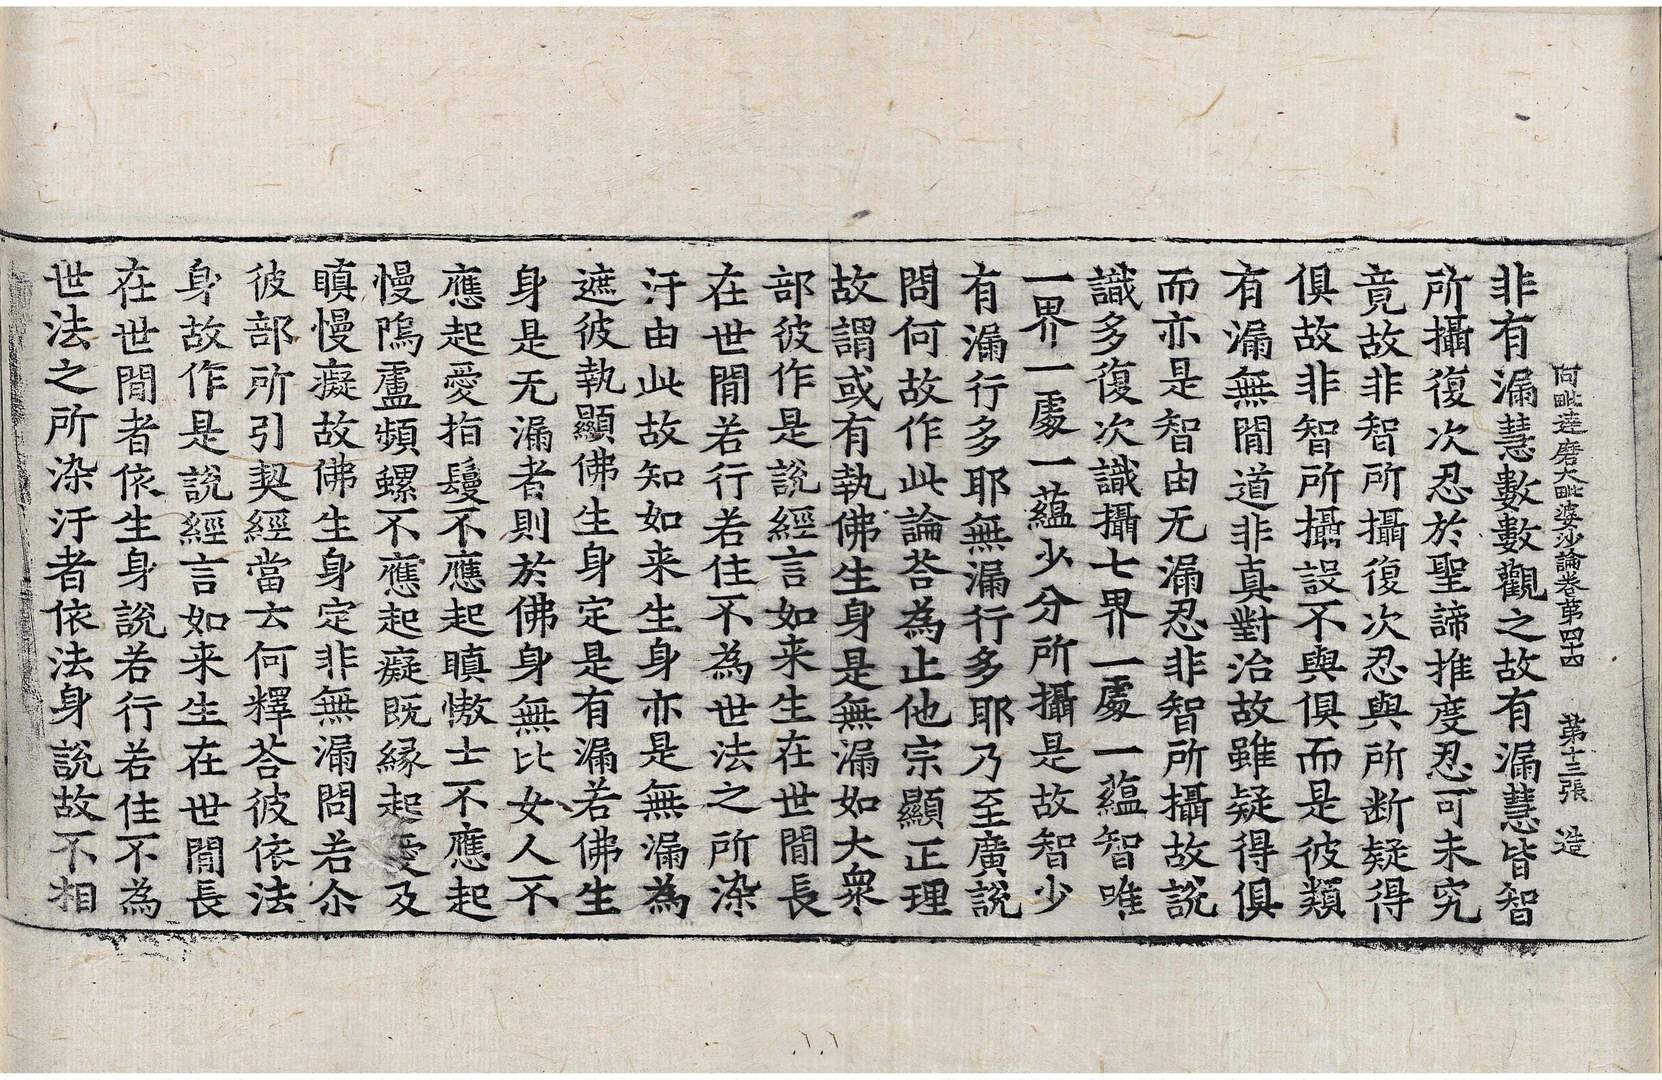 阿毗達磨大毗婆沙論卷第四十四　第十三張　造
非有漏慧數數觀之故有漏慧皆智
所攝復次忍於聖諦推度忍可未究
竟故非智所攝復次忍與所断疑得
俱故非智所攝設不與俱而是彼類
有漏無閒道非真對治故雖疑得俱
而亦是智由无漏忍非智所攝故說
識多復次識攝七界一處一蘊智唯
一界一處一蘊少分所攝是故智少
有漏行多耶無漏行多耶乃至廣說
問何故作此論荅為止他宗顯正理
故謂或有執佛生身是無漏如大衆
部彼作是說經言如来生在世閒長
在世閒若行若住不為世法之所染
汙由此故知如来生身亦是無漏為
遮彼執顯佛生身定是有漏若佛生
身是无漏者則於佛身無比女人不
應起愛指鬘不應起瞋慠士不應起
慢隖盧頻螺不應起癡既緣起愛及
瞋慢癡故佛生身定非無漏問若尒
彼部所引契經當云何釋荅彼依法
身故作是說經言如来生在世閒長
在世閒者依生身說若行若住不為
世法之所染汙者依法身說故不相